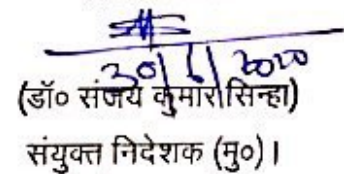 30/6/2020
(डॉ० संजय कुमार सिन्हा)
संयुक्त निदेशक (मु०)।